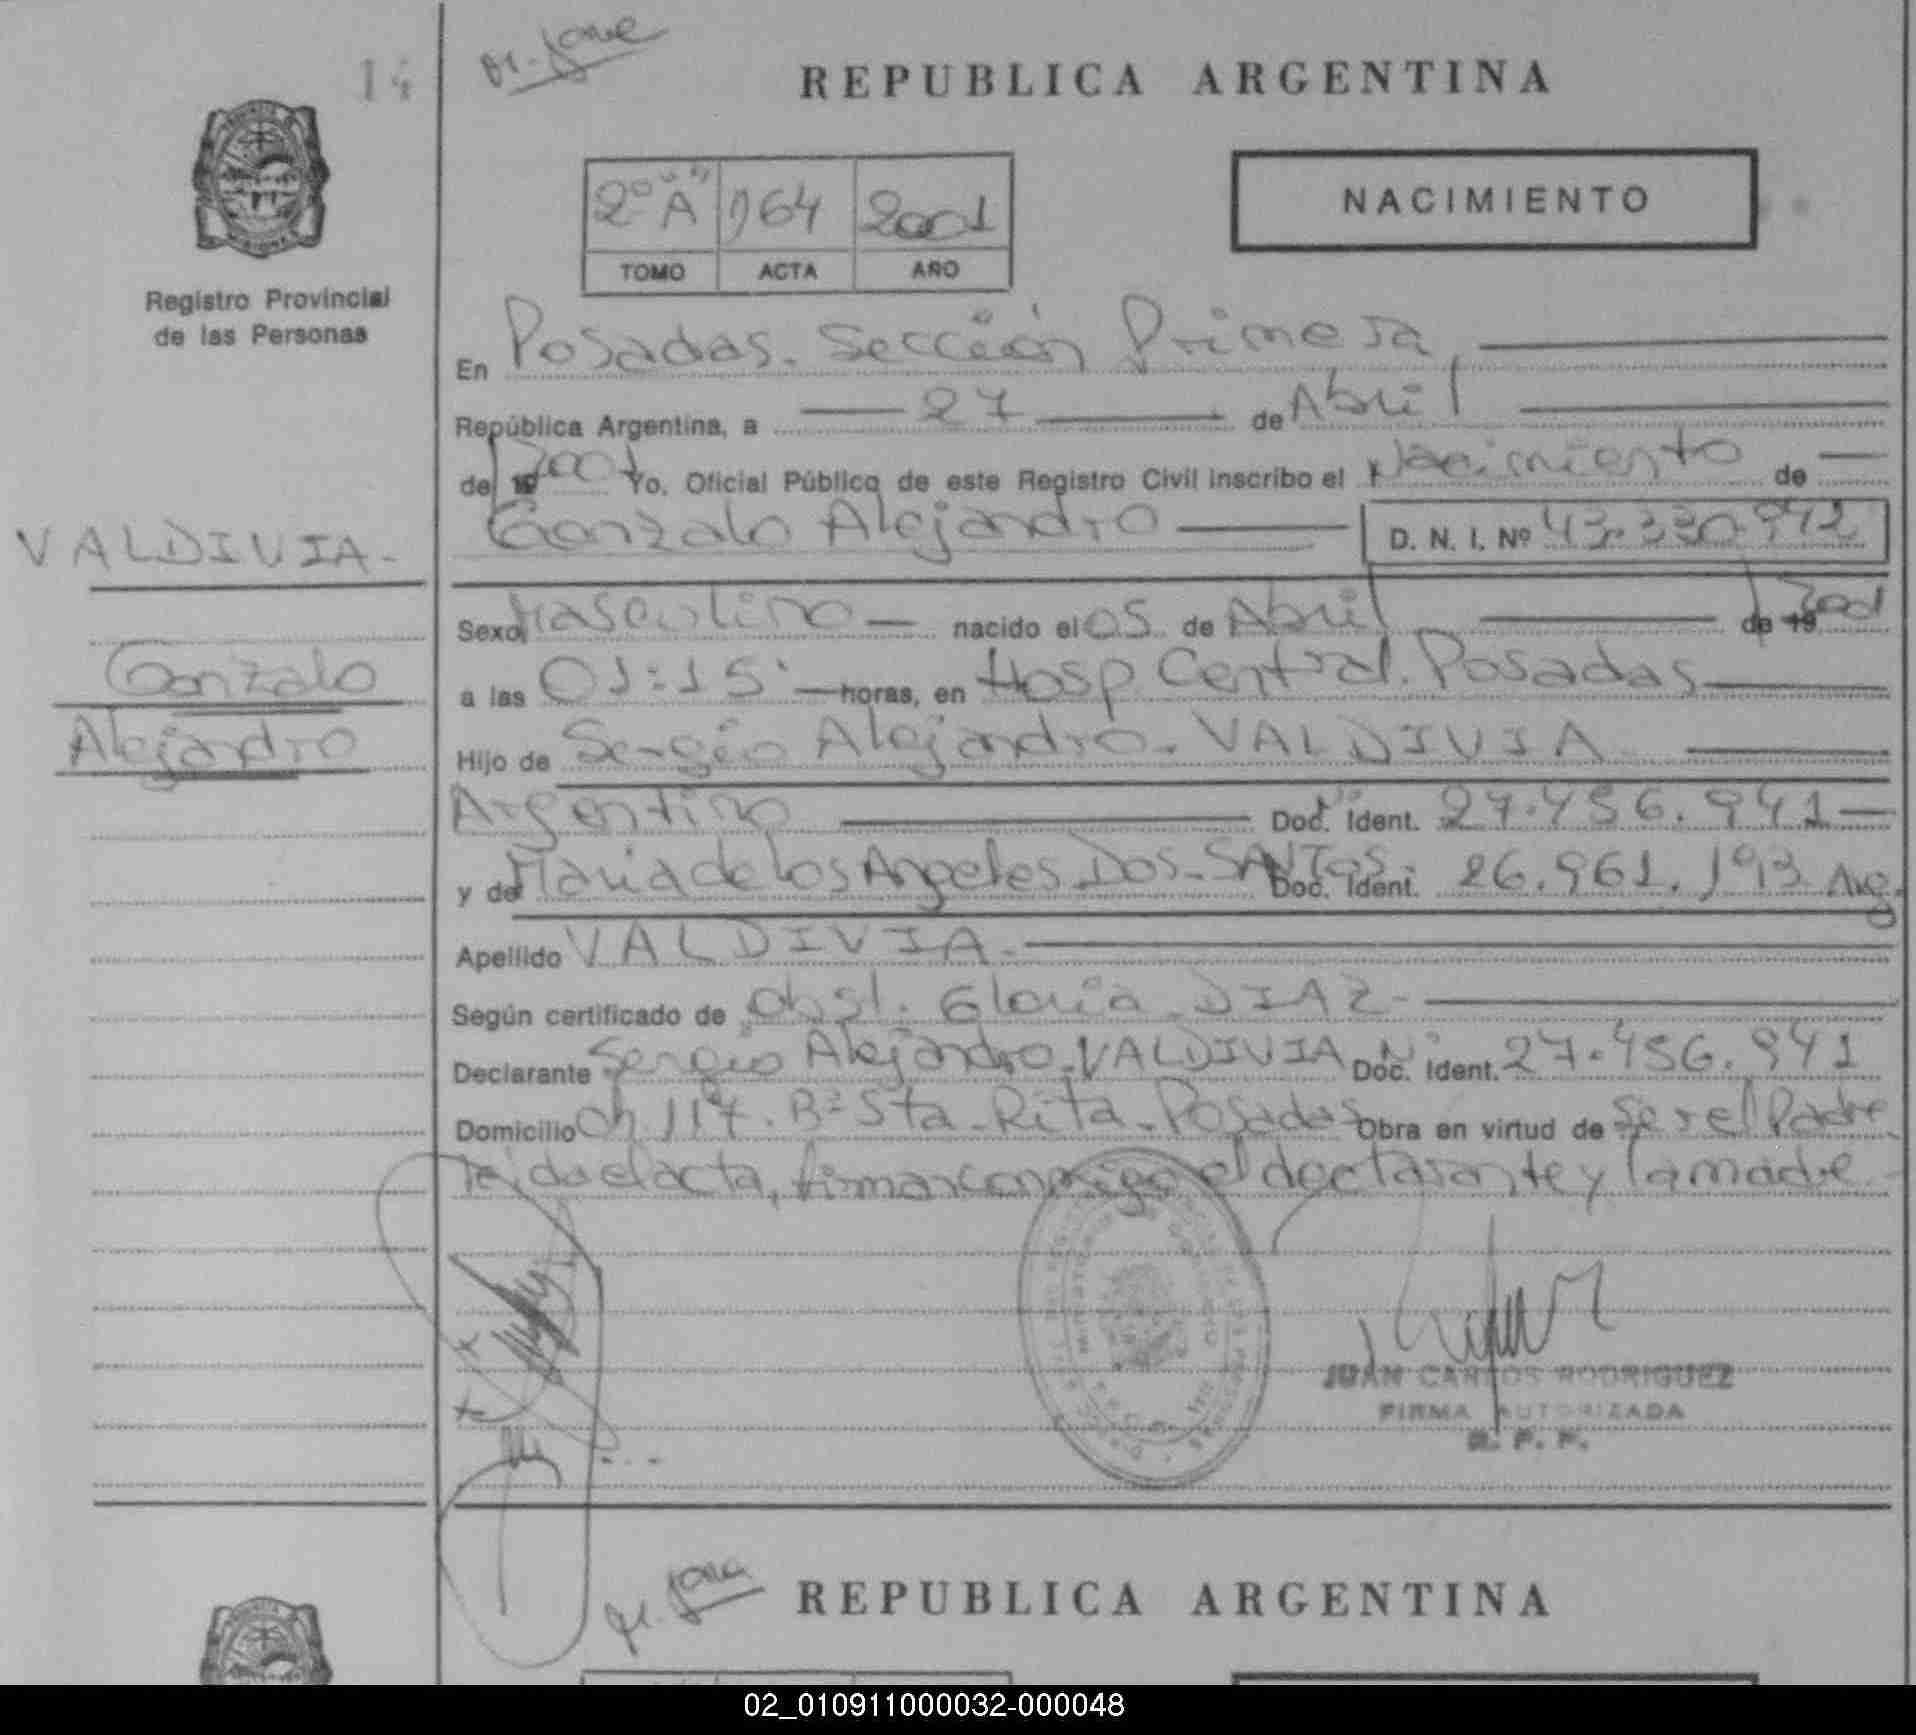 14
REPUBLICA ARGENTINA
2º "A" 164 2001
TOMO ACTA AÑO
NACIMIENTO
Registro Provincial
de las Personas
En Posadas. Sección Primera,
República Argentina, a 27 de Abril
de 19 2001 Yo, Oficial Público de este Registro Civil inscribo el Nacimiento de
Gonzalo Alejandro D. N. I. Nº 43.330.942
VALDIVIA.-
Gonzalo
Alejandro
Sexo Masculino nacido el 05 de Abril de 19 2001
a las 01:15' horas, en Hosp Central. Posadas
Hijo de Sergio Alejandro. VALDIVIA.
Argentino Doc. Ident. 27.456.941
y de Maria de los Angeles Dos-SANTOS. Doc. Ident. 26.961.193 Arg.
Apellido VALDIVIA.
Según certificado de obst. Gloria DIAZ-
Declarante Sergio Alejandro VALDIVIA Nº Doc. Ident. 27.456.941
Domicilio Ch. 117. Bº Sta. Rita. Posadas Obra en virtud de ser el Padre
leido el acta, firman conmigo el declarante y la madre.
JUAN CARLOS RODRIGUEZ
FIRMA AUTORIZADA
R. P. P.
REPUBLICA ARGENTINA
02_010911000032-000048